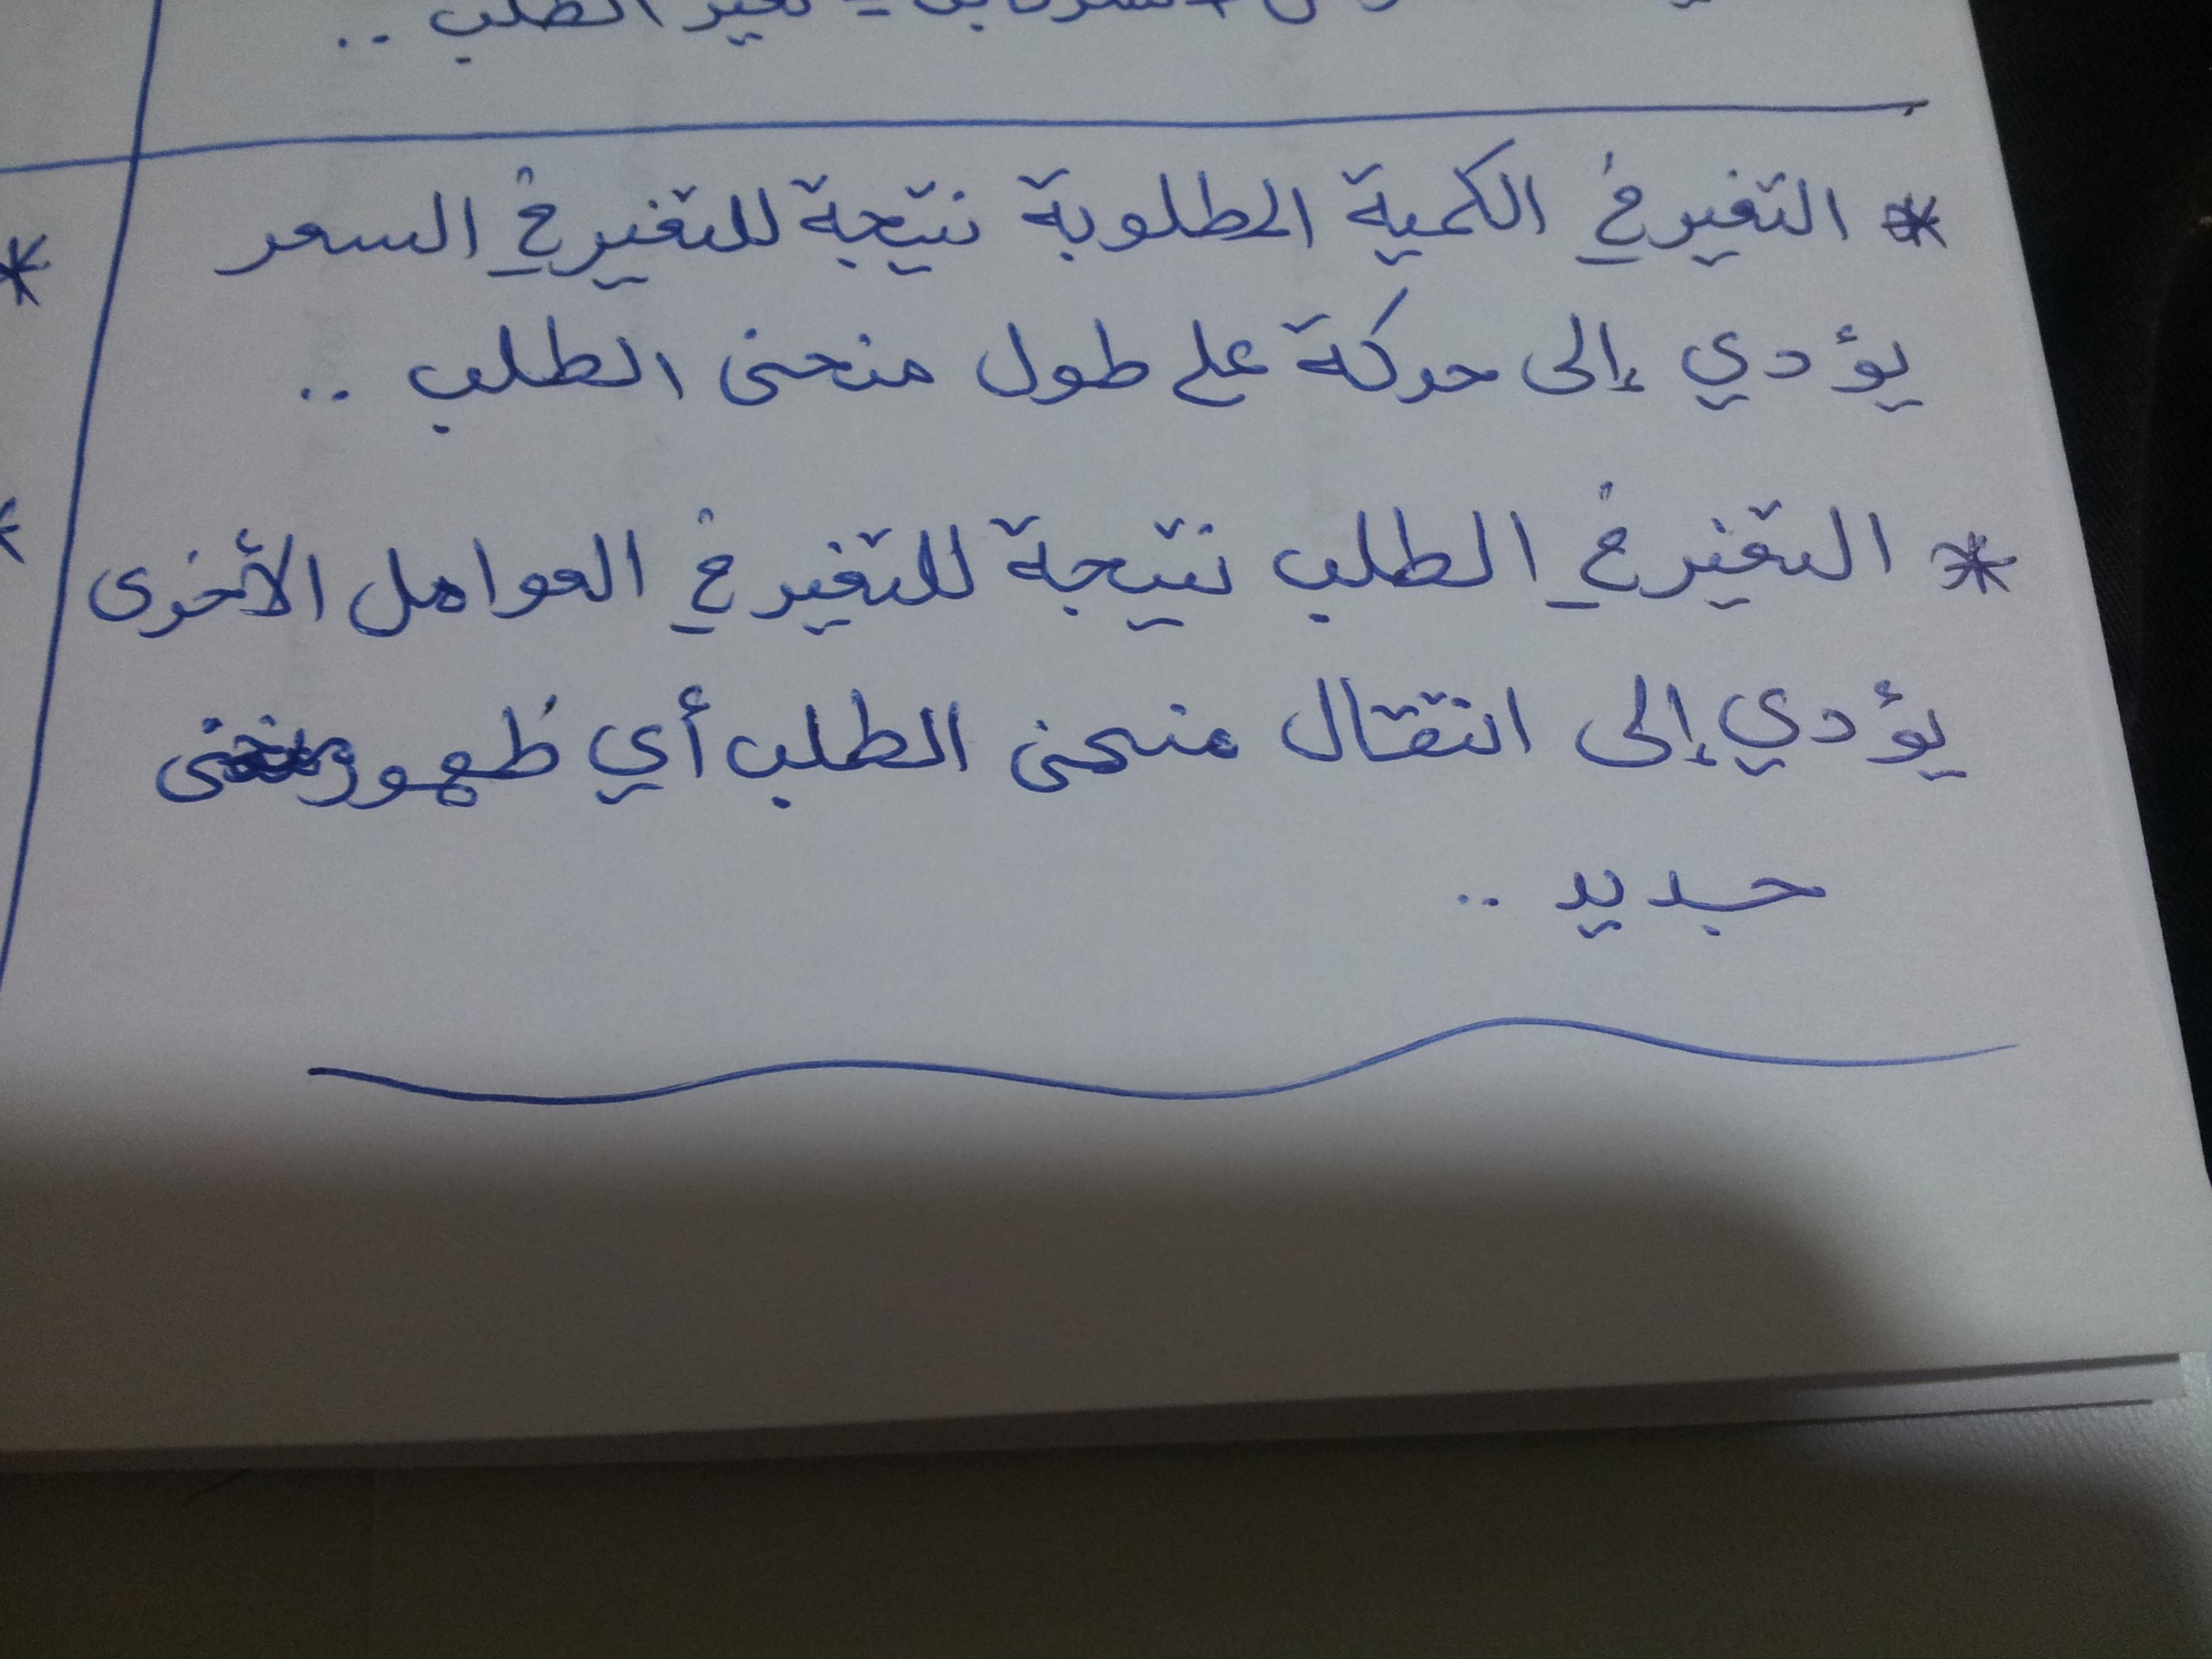 تغير الطلب ..
* التغير في الكمية المطلوبة نتيجة للتغير في السعر
يؤدي إلى حركة على طول منحنى الطلب ..
* التغير في الطلب نتيجة للتغير في العوامل الأخرى
يؤدي إلى انتقال منحنى الطلب أي ظهور منحنى
جديد ..
*
*